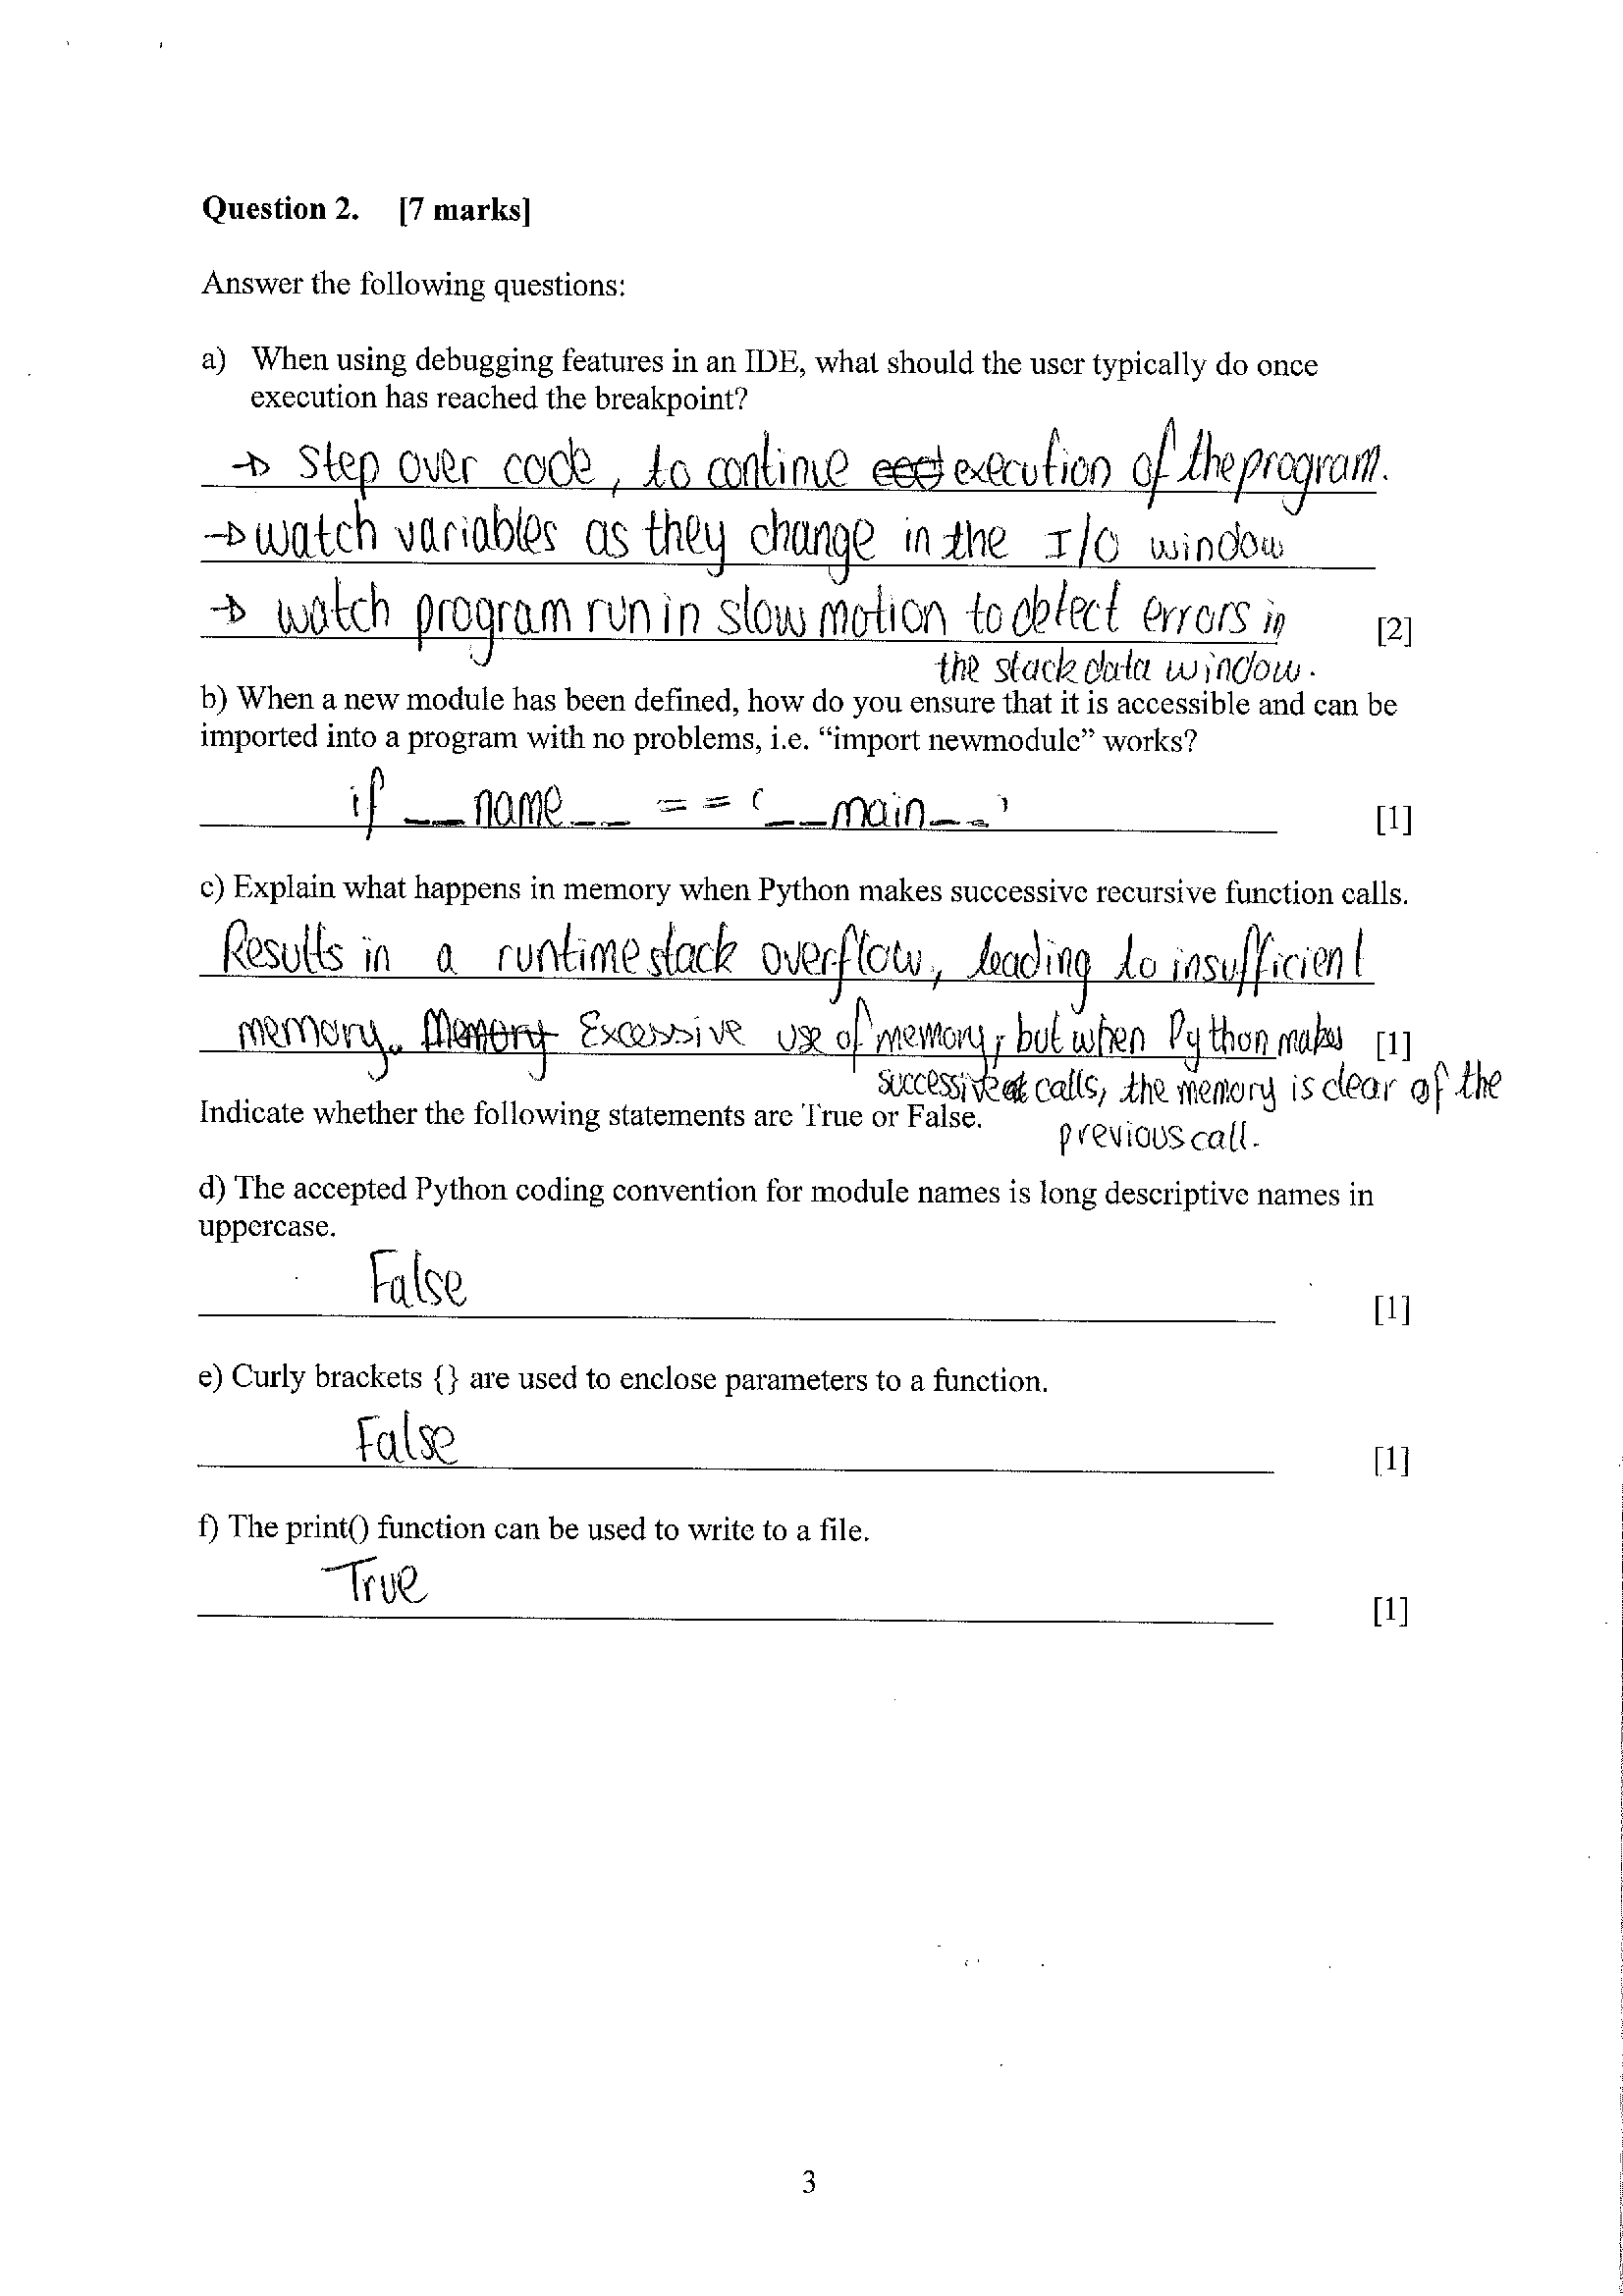 Question 2. [7 marks]
Answer the following questions:
a) When using debugging features in an IDE, what should the user typically do once
execution has reached the breakpoint?
→ Step over code, to continue execution of the program.
→ watch variables as they change in the I/O window
→ watch program run in slow motion to detect errors in [2]
the stack data window.
b) When a new module has been defined, how do you ensure that it is accessible and can be
imported into a program with no problems, i.e. “import newmodule” works?
if __name__ == '__main__' [1]
c) Explain what happens in memory when Python makes successive recursive function calls.
Results in a runtime stack overflow, leading to insufficient
memory. Memory Excessive use of memory, but when Python makes [1]
successive calls, the memory is clear of the
Indicate whether the following statements are True or False.
previous call.
d) The accepted Python coding convention for module names is long descriptive names in
uppercase.
False
[1]
e) Curly brackets {} are used to enclose parameters to a function.
False
[1]
f) The print() function can be used to write to a file.
True
[1]
3